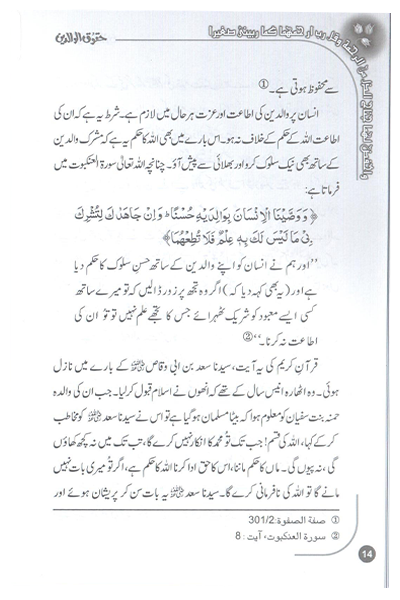 حقوق الوالدین
وقل رب ارحمهما كما ربيني صغيرا
سے محفوظ ہوتی ہے۔①
انسان پر والدین کی اطاعت اور عزت ہر حال میں لازم ہے۔ شرط یہ ہے کہ ان کی
اطاعت اللہ کے حکم کے خلاف نہ ہو۔ اس بارے میں بھی اللہ کا حکم یہ ہے کہ مشرک والدین
کے ساتھ بھی نیک سلوک کرو اور بھلائی سے پیش آؤ۔ چنانچہ اللہ تعالیٰ سورۃ العنکبوت میں
فرماتا ہے:
﴿وَوَصَّيْنَا الْإِنْسَانَ بِوَالِدَيْهِ حُسْنًا ۖ وَإِنْ جَاهَدَاكَ لِتُشْرِكَ
بِي مَا لَيْسَ لَكَ بِهِ عِلْمٌ فَلَا تُطِعْهُمَا﴾
’’اور ہم نے انسان کو اپنے والدین کے ساتھ حسنِ سلوک کا حکم دیا
ہے اور (یہ بھی کہہ دیا کہ) اگر وہ تجھ پر زور ڈالیں کہ تو میرے ساتھ
کسی ایسے معبود کو شریک ٹھہرائے جس کا تجھے علم نہیں تو تُو ان کی
اطاعت نہ کرنا۔‘‘②
قرآنِ کریم کی یہ آیت، سیدنا سعد بن ابی وقاص رضی اللہ عنہ کے بارے میں نازل
ہوئی۔ وہ اٹھارہ انیس سال کے تھے کہ انھوں نے اسلام قبول کرلیا۔ جب ان کی والدہ
حمنہ بنت سفیان کو معلوم ہوا کہ بیٹا مسلمان ہوگیا ہے تو اس نے سیدنا سعد رضی اللہ عنہ کو مخاطب
کر کے کہا، اللہ کی قسم! جب تک تُو محمد کا انکار نہیں کرے گا، تب تک میں نہ کچھ کھاؤں
گی، نہ پیوں گی۔ ماں کا حکم ماننا، اس کا حق ادا کرنا اللہ کا حکم ہے، اگر تُو میری بات نہیں
مانے گا تو اللہ کی نافرمانی کرے گا۔ سیدنا سعد رضی اللہ عنہ یہ بات سن کر پریشان ہوئے اور
① صفة الصفوة: 301/2
② سورة العنكبوت، آیت: 8
14